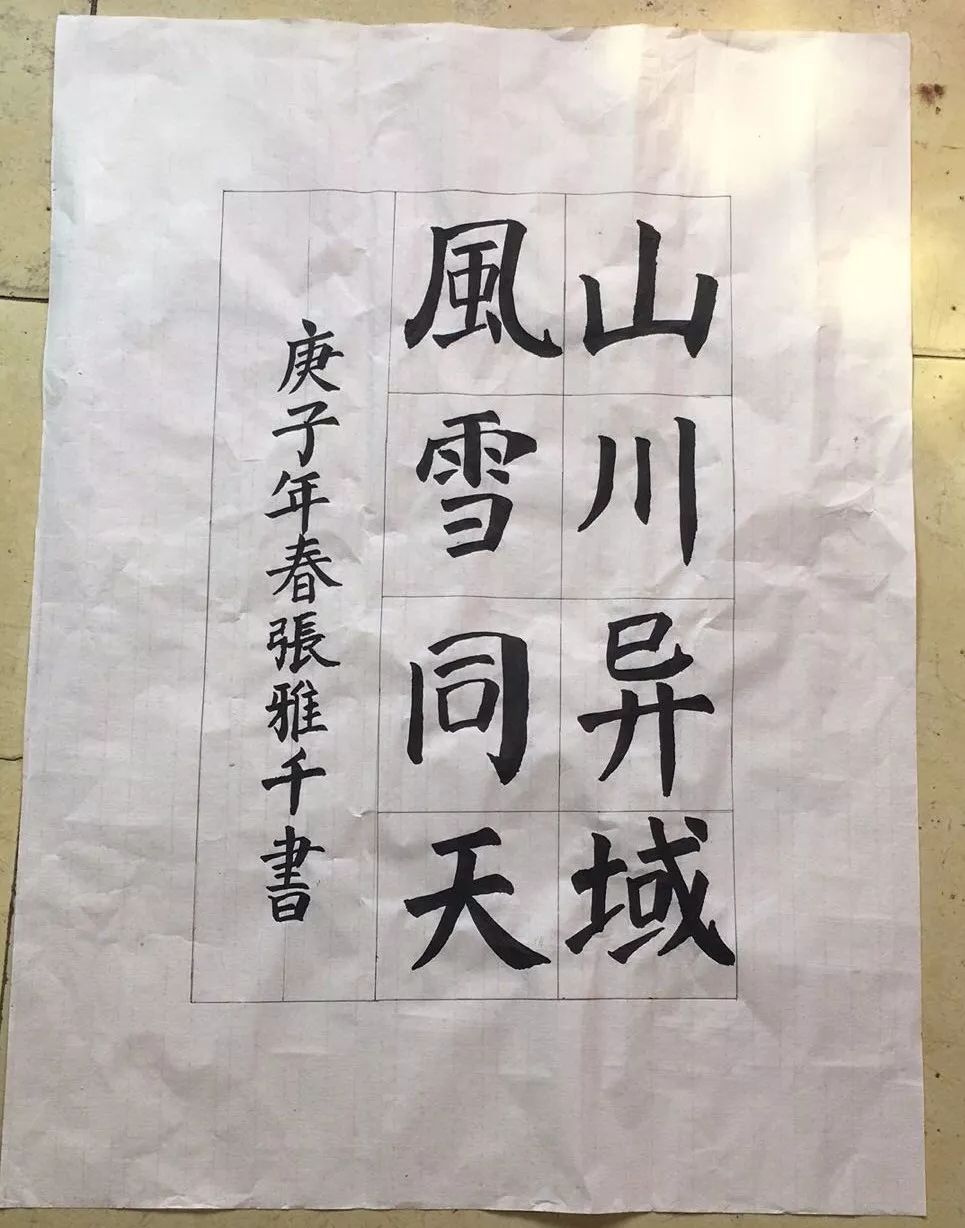 山川异域
風雪同天
庚子年春張雅千書